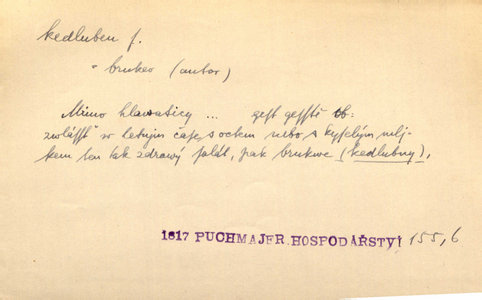 kedluben f.
= brukev (autor)
Mimo hlavaticy ... gest gessťě ob:
zwlásstě w letnjm čase s octem nebo s kyselým mlj-
kem ten tak zdrawý salát, pak brukwe (kedlubny),
1817 PUCHMAJER HOSPODÁŘSTVÍ 155,6